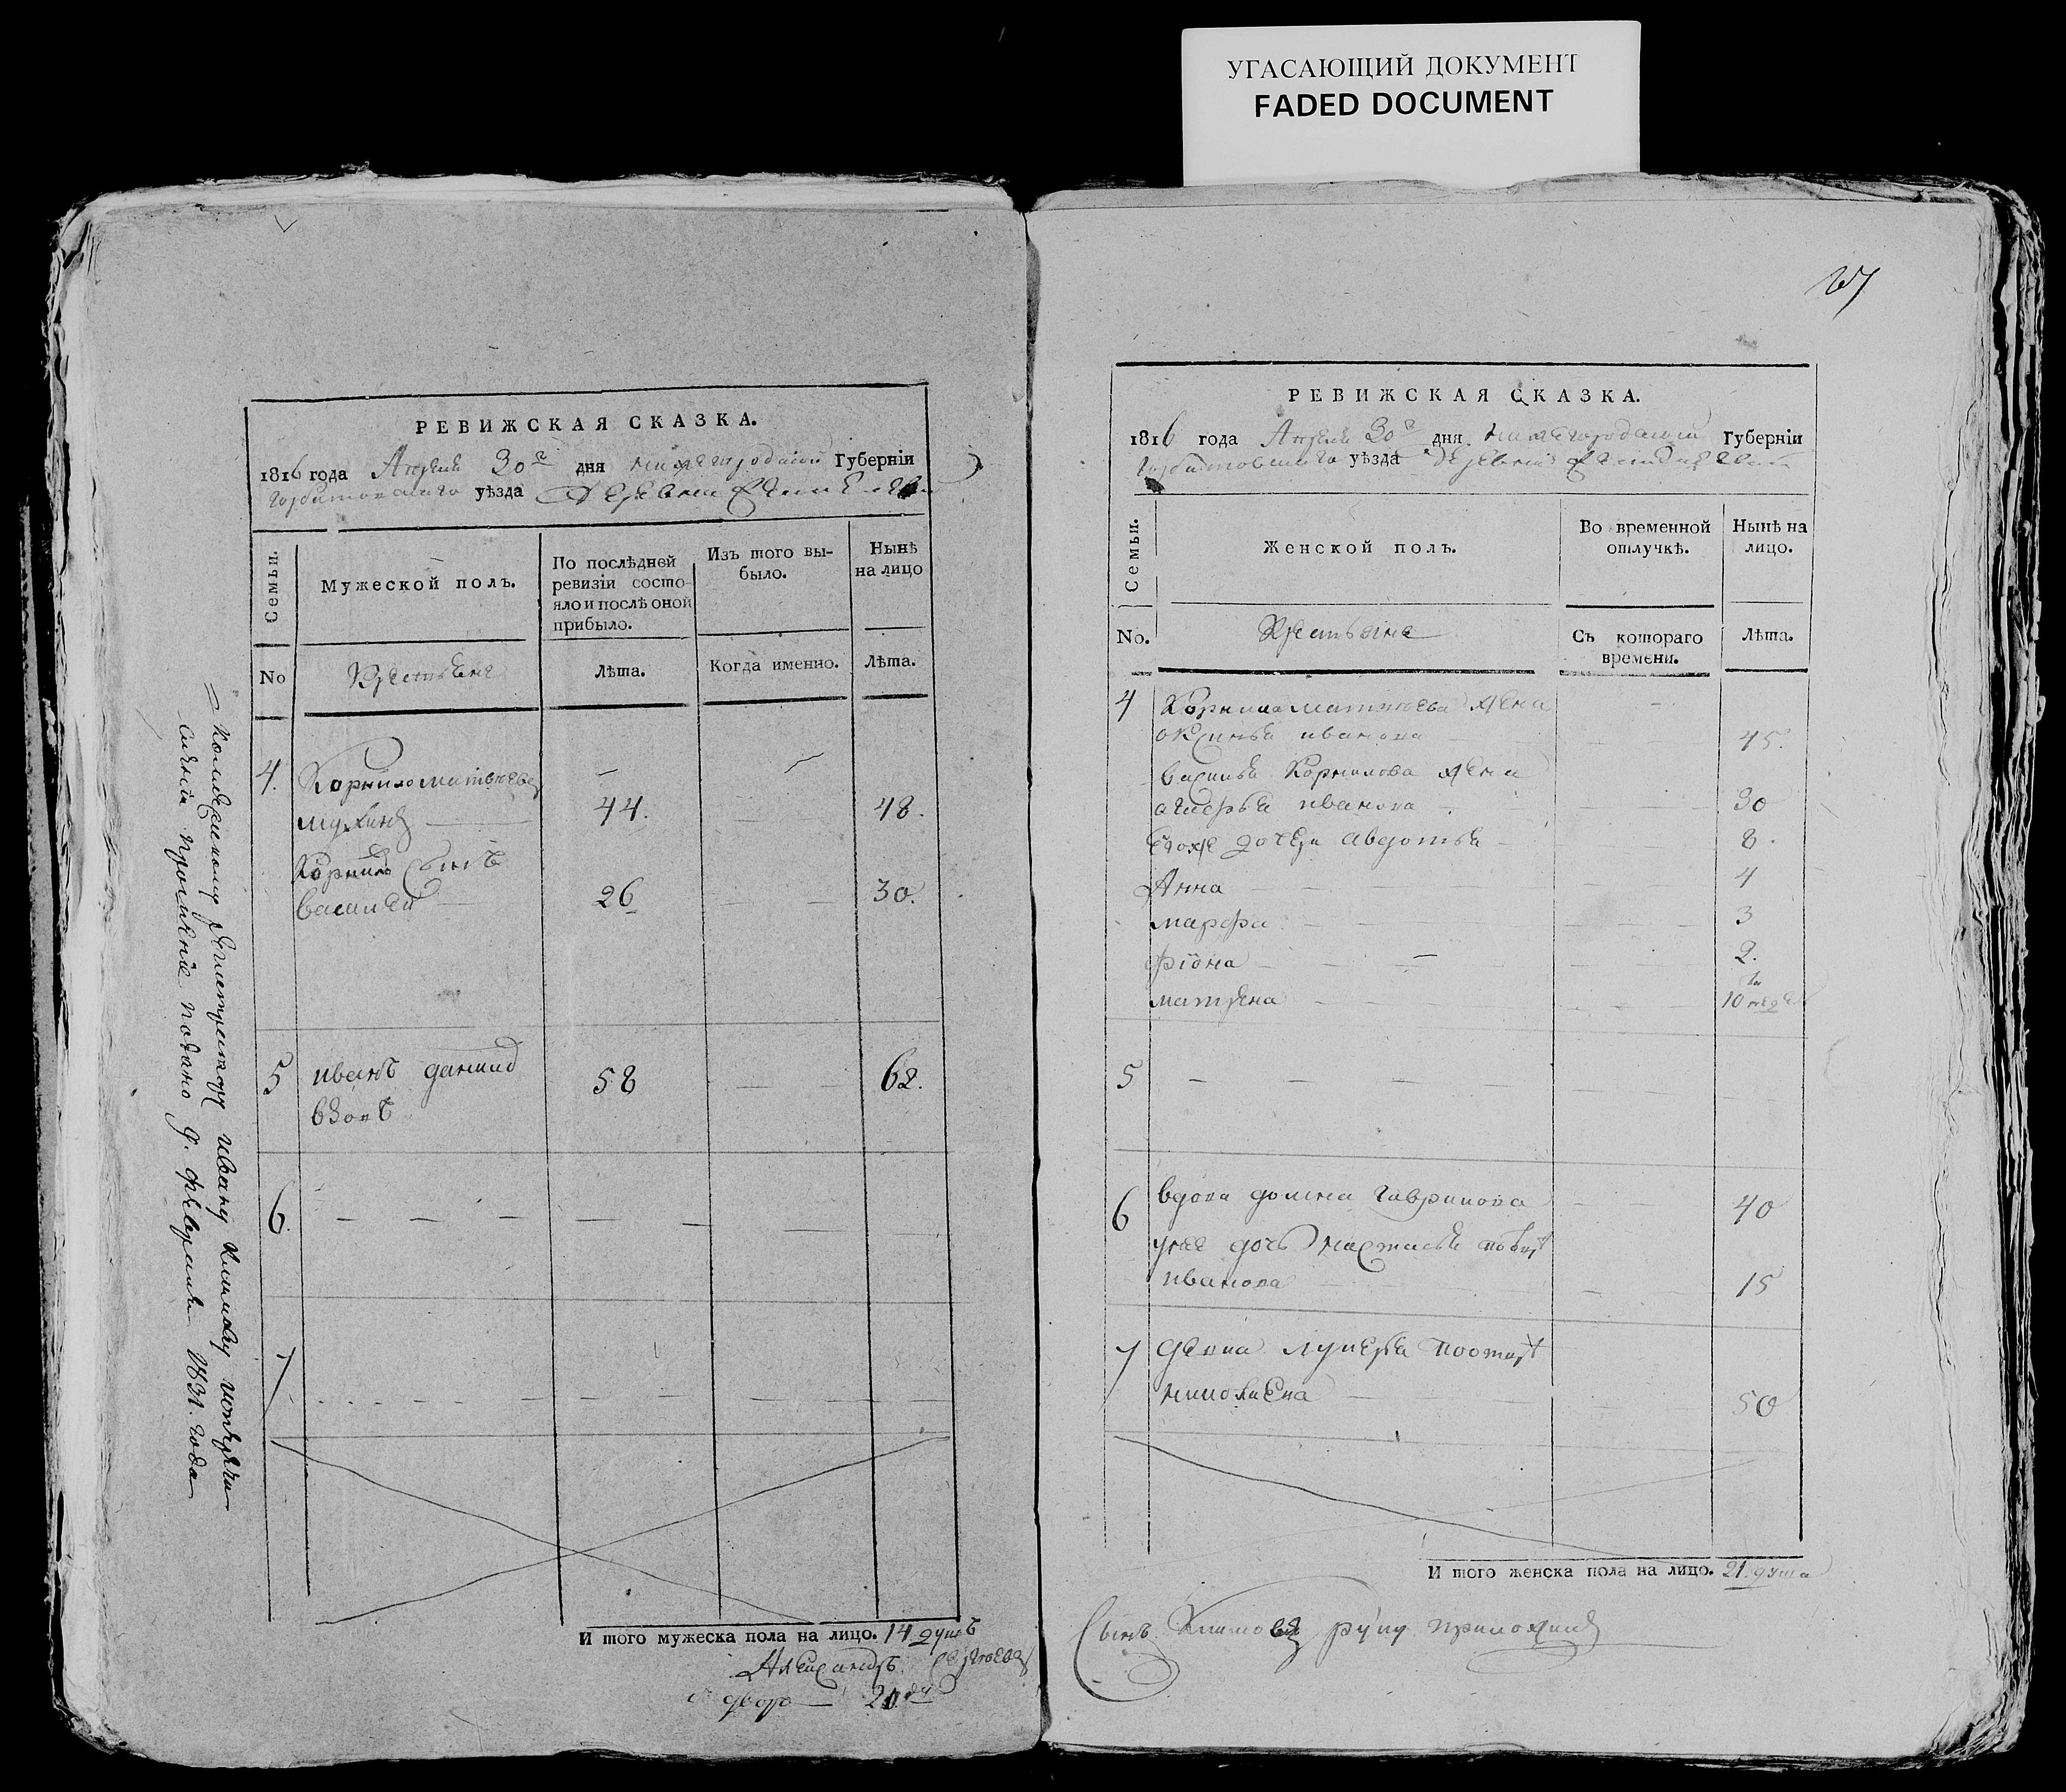 УГАСАЮЩИЙ ДОКУМЕНТ
FADED DOCUMENT
РЕВИЖСКАЯ СКАЗКА.
1816 года Апреля 30 дня нижегородской Губерніи
горбатовскаго уѣзда Деревни
Семьи.
Мужеской полъ.
По послѣдней ревизіи состо-
яло и послѣ оной прибыло.
Изъ того вы-
было.
Нынѣ
на лицо
No
Крестьяне
Лѣта.
Когда именно.
Лѣта.
4. Корнило матвеевъ
44. 48.
Корнилы сынъ
василей 26 30.
5 иванъ данилъ 58 62.
6.
7
И того мужеска пола на лицо. 14 душъ
Александръ Сергеевъ
Колежскому регистратору ивану Климову
прошение подано 9. февраля 1831. года
67
РЕВИЖСКАЯ СКАЗКА.
1816 года Апреля 30 дня нижегородской Губерніи
горбатовскаго уѣзда деревни
Семьи.
Женской полъ.
Во временной
отлучкѣ.
Нынѣ на
лицо.
No.
Крестьяне
Съ котораго
времени.
Лѣта.
4 Корнила матвеева жена
оксинья иванова 45.
василья Корнилова жена
иванова 30
Его же дочери авдотья 8.
Анна 4
марфа 3
фіона 2.
матрена 10 недель
5
6 вдова домна гаврилова 40
у нее дочь настасья
иванова 15
7 девка лукерья
николаева 50
И того женска пола на лицо. 21. душа
сынъ Климовъ руку приложилъ